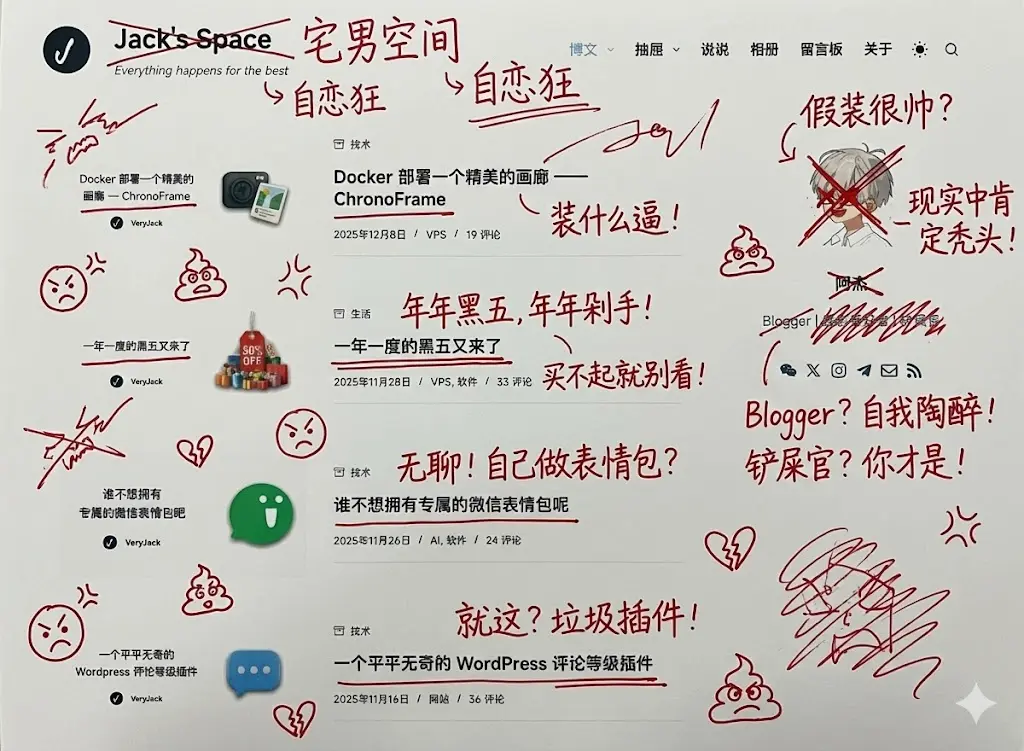 Jack's Space 宅男空间
Everything happens for the best
博文 抽屉 说说 相册 留言板 关于
自恋狂
自恋狂
假装很帅？
现实中肯
定秃头！
Docker 部署一个精美的
画廊 — ChronoFrame
VeryJack
技术
Docker 部署一个精美的画廊 ——
ChronoFrame
装什么逼！
2025年12月8日 / VPS / 19 评论
阿杰
Blogger |
Blogger？自我陶醉！
铲屎官？你才是！
一年一度的黑五又来了
VeryJack
SO% OFF
生活
年年黑五，年年剁手！
一年一度的黑五又来了
2025年11月28日 / VPS, 软件 / 33 评论
买不起就别看！
谁不想拥有
专属的微信表情包吧
VeryJack
技术
无聊！自己做表情包？
谁不想拥有专属的微信表情包呢
2025年11月26日 / AI, 软件 / 24 评论
一个平平无奇的
Wordpress 评论等级插件
VeryJack
技术
就这？垃圾插件！
一个平平无奇的 WordPress 评论等级插件
2025年11月16日 / 网站 / 36 评论